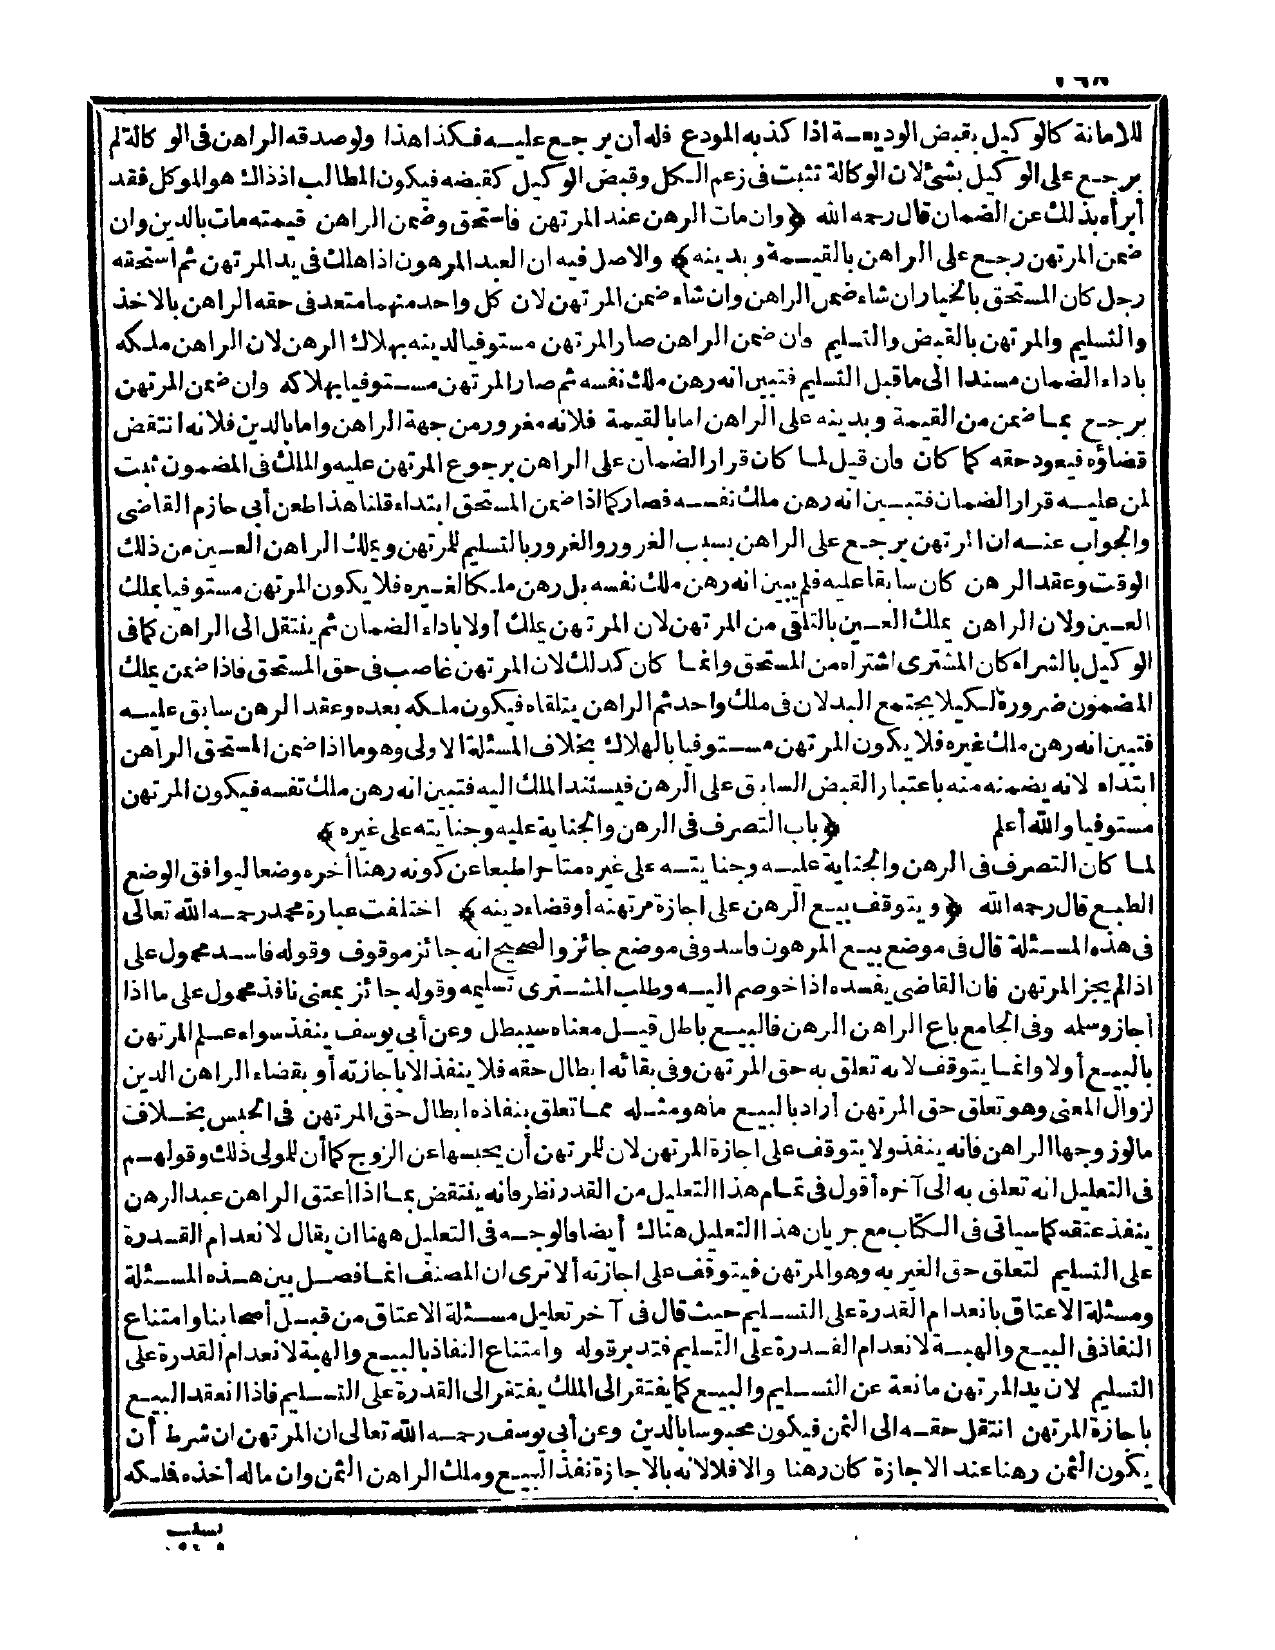 للامانة كالوكيل بقبض الوديعة اذا كذبه المودع فله أن يرجع عليه فكذا هذا ولو صدقه الراهن فى الوكالة لم
يرجع على الوكيل بشئ لان الوكالة تثبت فى زعم الكل وقبض الوكيل كقبضه فيكون المطالب اذ ذاك هو الموكل فقد
أبرأه بذلك عن الضمان قال رحمه الله ﴿وان مات الرهن عند المرتهن فاستحق وضمن الراهن قيمته مات بالدين وان
ضمن المرتهن رجع على الراهن بالقيمة وبدينه﴾ والاصل فيه ان العبد المرهون اذا هلك فى يد المرتهن ثم استحقه
رجل كان المستحق بالخيار ان شاء ضمن الراهن وان شاء ضمن المرتهن لان كل واحد منهما متعد فى حقه الراهن بالاخذ
والتسليم والمرتهن بالقبض والتسليم وان ضمن الراهن صار المرتهن مستوفيا لدينه بهلاك الرهن لان الراهن ملكه
باداء الضمان مسندا الى ما قبل التسليم فتبين انه رهن ملك نفسه ثم صار المرتهن مستوفيا بهلاكه وان ضمن المرتهن
يرجع بما ضمن من القيمة وبدينه على الراهن اما بالقيمة فلانه مغرور من جهة الراهن واما بالدين فلانه انتقض
قضاؤه فيعود حقه كما كان فان قيل لما كان قرار الضمان على الراهن برجوع المرتهن عليه والملك فى المضمون ثبت
لمن عليه قرار الضمان فتبين انه رهن ملك نفسه فصار كما اذا ضمن المستحق ابتداء قلنا هذا طعن أبى حازم القاضى
والجواب عنه ان المرتهن يرجع على الراهن بسبب الغرور والغرور بالتسليم للمرتهن ويملك الراهن العين من ذلك
الوقت وعقد الرهن كان سابقا عليه فلم يبين انه رهن ملك نفسه بل رهن ملكا لغيره فلا يكون المرتهن مستوفيا بملك
العين ولان الراهن يملك العين بالتلقى من المرتهن لان المرتهن يملك أولا باداء الضمان ثم ينتقل الى الراهن كما فى
الوكيل بالشراء كان المشترى اشتراه من المستحق وانما كان كذلك لان المرتهن غاصب فى حق المستحق فاذا ضمن يملك
المضمون ضرورة لكيلا يجتمع البدلان فى ملك واحد ثم الراهن يتلقاه فيكون ملكه بعده وعقد الرهن سابق عليه
فتبين انه رهن ملك غيره فلا يكون المرتهن مستوفيا بالهلاك بخلاف المسئلة الاولى وهو ما اذا ضمن المستحق الراهن
ابتداء لانه يضمنه منه باعتبار القبض السابق على الرهن فيستند الملك اليه فتبين انه رهن ملك نفسه فيكون المرتهن
مستوفيا والله أعلم ﴿باب التصرف فى الرهن والجناية عليه وجنايته على غيره﴾
لما كان التصرف فى الرهن والجناية عليه وجنايته على غيره متاخرا طبعا عن كونه رهنا أخره وضعا ليوافق الوضع
الطبع قال رحمه الله ﴿ويتوقف بيع الرهن على اجازة مرتهنه أو قضاء دينه﴾ اختلفت عبارة محمد رحمه الله تعالى
فى هذه المسئلة قال فى موضع بيع المرهون فاسد وفى موضع جائز والصحيح انه جائز موقوف وقوله فاسد محمول على
اذا لم يجز المرتهن فان القاضى يفسده اذا خوصم اليه وطلب المشترى تسليمه وقوله جائز بمعنى نافذ محمول على ما اذا
أجاز وسلمه وفى الجامع باع الراهن الرهن فالبيع باطل قيل معناه سيبطل وعن أبى يوسف ينفذ سواء علم المرتهن
بالبيع أولا وانما يتوقف لانه تعلق به حق المرتهن وفى بقائه ابطال حقه فلا ينفذ الا باجازته أو بقضاء الراهن الدين
لزوال المعنى وهو تعلق حق المرتهن أراد بالبيع ما هو مثله مما تعلق بنفاذه ابطال حق المرتهن فى الحبس بخلاف
ما لو زوجها الراهن فانه ينفذ ولا يتوقف على اجازة المرتهن لان للمرتهن أن يحبسها عن الزوج كما أن للمولى ذلك وقولهم
فى التعليل انه تعلق به الى آخره أقول فى تمام هذا التعليل من القدر نظر فانه ينتقض بما اذا اعتق الراهن عبد الرهن
ينفذ عتقه كما سياتى فى الكتاب مع جريان هذا التعليل هناك أيضا فالوجه فى التعليل ههنا ان يقال لانعدام القدرة
على التسليم لتعلق حق الغير به وهو المرتهن فيتوقف على اجازته ألا ترى ان المصنف انما فصل بين هذه المسئلة
ومسئلة الاعتاق بانعدام القدرة على التسليم حيث قال فى آخر تعليل مسئلة الاعتاق من قبل أصحابنا وامتناع
النفاذ فى البيع والهبة لانعدام القدرة على التسليم فتدبر قوله وامتناع النفاذ بالبيع والهبة لانعدام القدرة على
التسليم لان يد المرتهن مانعة عن التسليم والبيع كما يفتقر الى الملك يفتقر الى القدرة على التسليم فاذا انعقد البيع
باجازة المرتهن انتقل حقه الى الثمن فيكون محبوسا بالدين وعن أبى يوسف رحمه الله تعالى ان المرتهن ان شرط أن
يكون الثمن رهنا عند الاجازة كان رهنا والا فلا لانه بالاجازة نفذ البيع وملك الراهن الثمن وان ماله أخذه فلكه